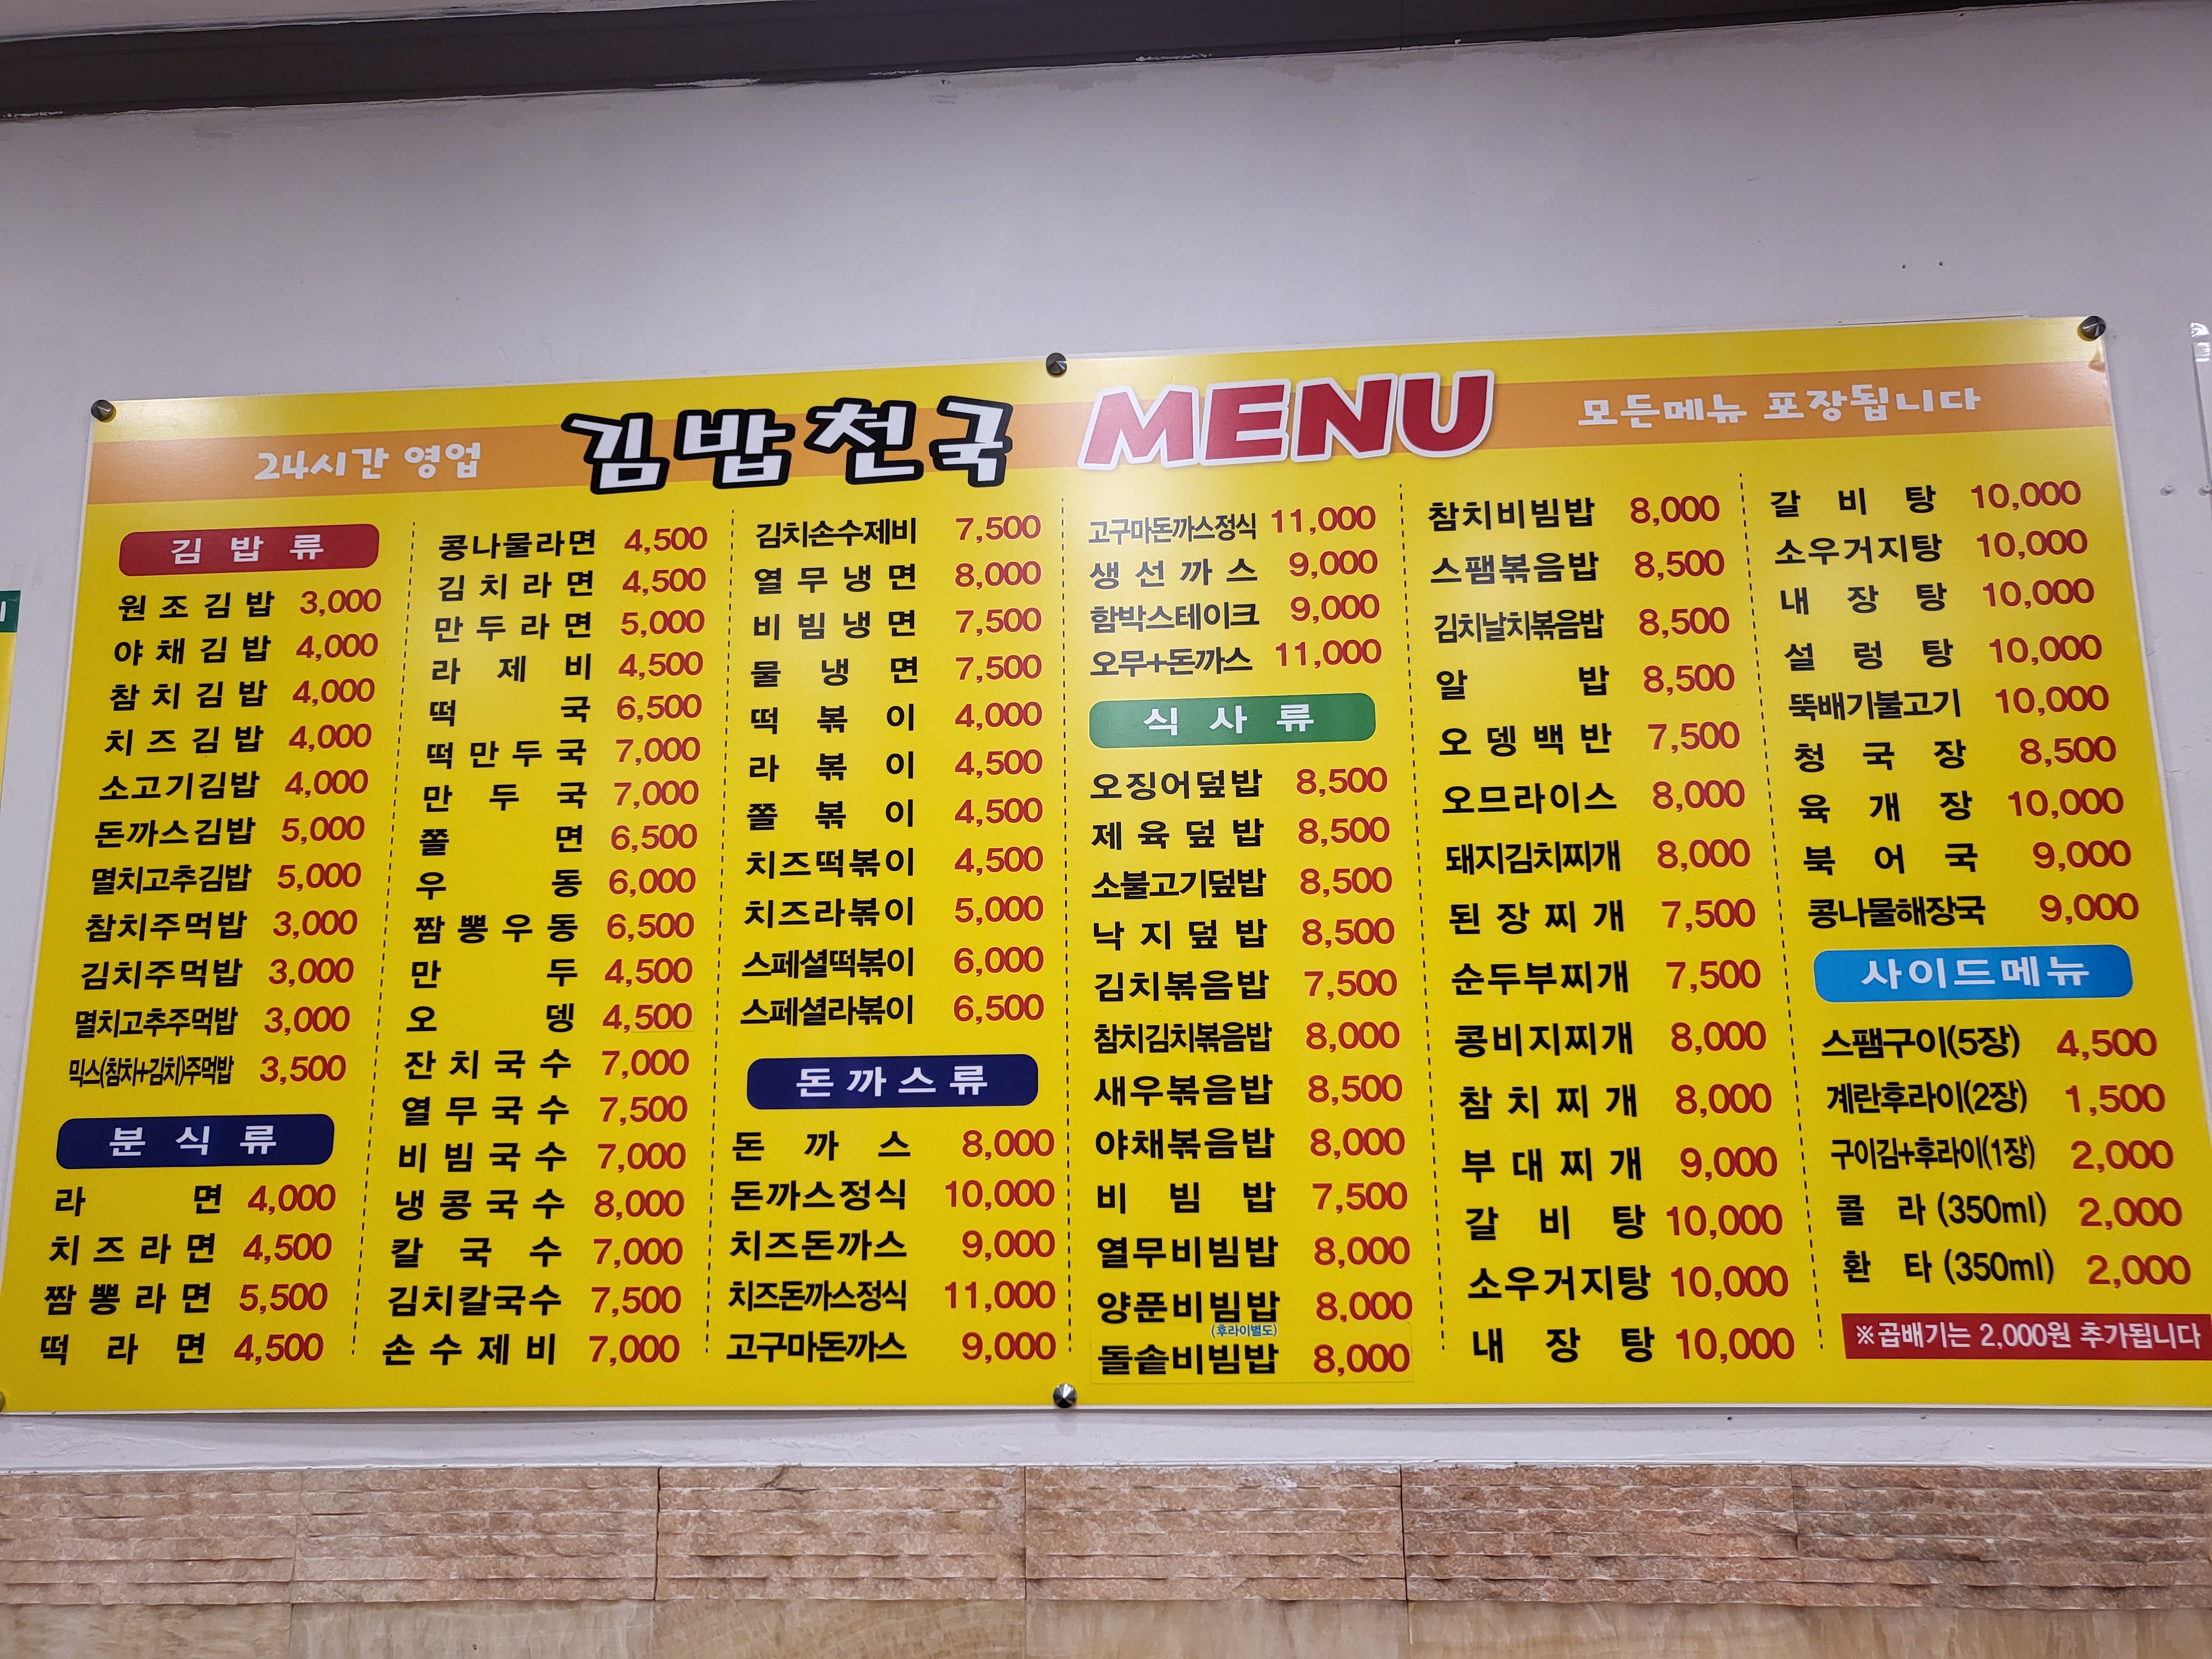 24시간 영업
김밥천국 MENU
모든메뉴 포장됩니다
김밥류
원조김밥 3,000
야채김밥 4,000
참치김밥 4,000
치즈김밥 4,000
소고기김밥 4,000
돈까스김밥 5,000
멸치고추김밥 5,000
참치주먹밥 3,000
김치주먹밥 3,000
멸치고추주먹밥 3,000
믹스(참치+김치)주먹밥 3,500
분식류
라면 4,000
치즈라면 4,500
짬뽕라면 5,500
떡라면 4,500
콩나물라면 4,500
김치라면 4,500
만두라면 5,000
라제비 4,500
떡국 6,500
떡만두국 7,000
만두국 7,000
쫄면 6,500
우동 6,000
짬뽕우동 6,500
만두 4,500
오뎅 4,500
잔치국수 7,000
열무국수 7,500
비빔국수 7,000
냉콩국수 8,000
칼국수 7,000
김치칼국수 7,500
손수제비 7,000
김치손수제비 7,500
열무냉면 8,000
비빔냉면 7,500
물냉면 7,500
떡볶이 4,000
라볶이 4,500
쫄볶이 4,500
치즈떡볶이 4,500
치즈라볶이 5,000
스페셜떡볶이 6,000
스페셜라볶이 6,500
돈까스류
돈까스 8,000
돈까스정식 10,000
치즈돈까스 9,000
치즈돈까스정식 11,000
고구마돈까스 9,000
고구마돈까스정식 11,000
생선까스 9,000
함박스테이크 9,000
오무+돈까스 11,000
식사류
오징어덮밥 8,500
제육덮밥 8,500
소불고기덮밥 8,500
낙지덮밥 8,500
김치볶음밥 7,500
참치김치볶음밥 8,000
새우볶음밥 8,500
야채볶음밥 8,000
비빔밥 7,500
열무비빔밥 8,000
양푼비빔밥 8,000
(후라이별도)
돌솥비빔밥 8,000
참치비빔밥 8,000
스팸볶음밥 8,500
김치날치볶음밥 8,500
알밥 8,500
오뎅백반 7,500
오므라이스 8,000
돼지김치찌개 8,000
된장찌개 7,500
순두부찌개 7,500
콩비지찌개 8,000
참치찌개 8,000
부대찌개 9,000
갈비탕 10,000
소우거지탕 10,000
내장탕 10,000
갈비탕 10,000
소우거지탕 10,000
내장탕 10,000
설렁탕 10,000
뚝배기불고기 10,000
청국장 8,500
육개장 10,000
북어국 9,000
콩나물해장국 9,000
사이드메뉴
스팸구이(5장) 4,500
계란후라이(2장) 1,500
구이김+후라이(1장) 2,000
콜라(350ml) 2,000
환타(350ml) 2,000
※곱배기는 2,000원 추가됩니다